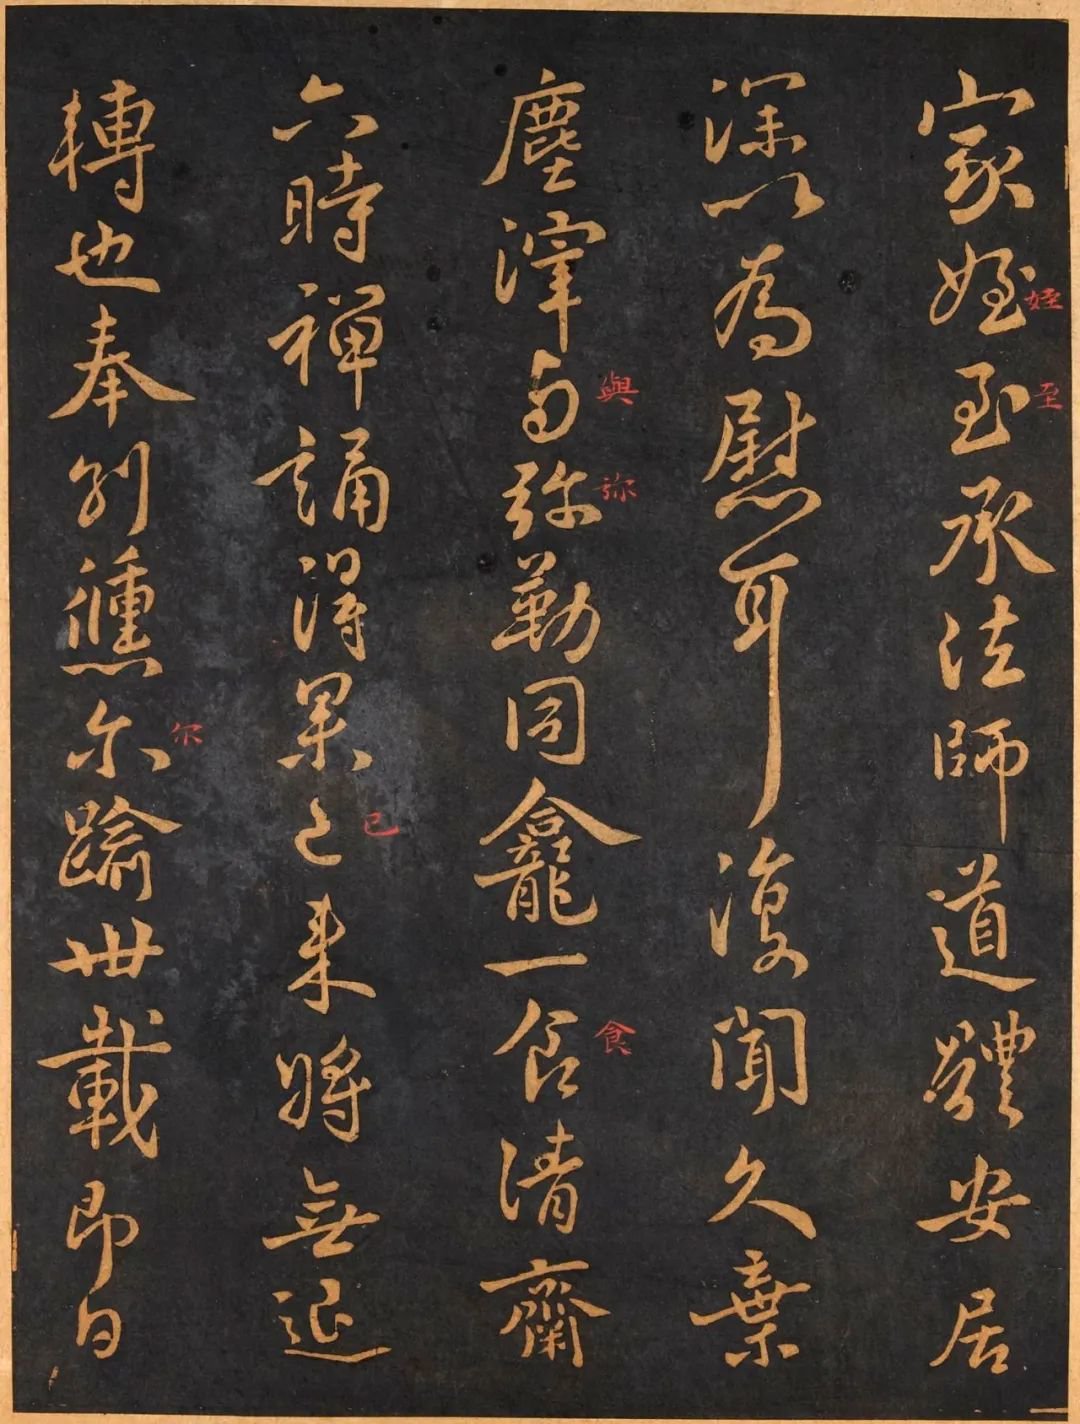 家姪至承法師道體安居
姪
至
深以為慰耳復聞久棄
塵滓与弥勒同龕一食清齋
與
弥
食
六時禪誦得果已來將無退
已
轉也奉別儵尔踰卅載即日
尔